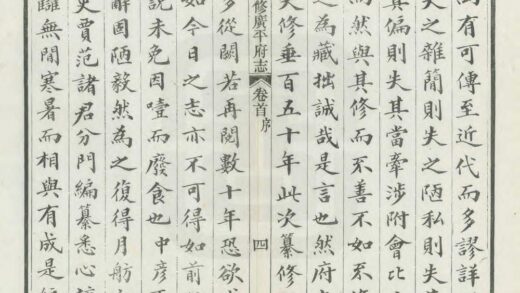 有可傳至近代而多謬詳
失之雜簡則失之陋私則失
其偏則失其當牽涉附會比
而然與其修而不善不如不
之為藏拙誠哉是言也然府
失修垂百五十年此次纂修
修廣平府志
卷首
序
四
多從闕若再閱數十年恐欲
如今日之志亦不可得如前
說未免因噎而廢食也中彥
辭固陋毅然為之復得月舫
史賈范諸君分門編纂悉心
讎無間寒暑而相與有成是